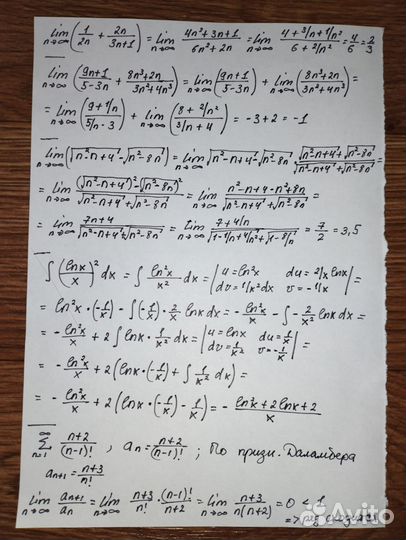 lim n→∞ (1/2n + 2n/3n+1) = lim n→∞ 4n²+3n+1/6n²+2n = lim n→∞ 4+3/n+1/n²/6+2/n² = 4/6 = 2/3
lim n→∞ (9n+1/5-3n + 8n³+2n/3n²+4n³) = lim n→∞ (9n+1/5-3n) + lim n→∞ (8n³+2n/3n²+4n³) =
= lim n→∞ (9+1/n/5/n-3) + lim n→∞ (8+2/n²/3/n+4) = -3+2 = -1
lim n→∞ (√n²-n+4 - √n²-8n) = lim n→∞ √n²-n+4 - √n²-8n · √n²-n+4 + √n²-8n/√n²-n+4 + √n²-8n =
= lim n→∞ (√n²-n+4)² - (√n²-8n)²/√n²-n+4 + √n²-8n = lim n→∞ n²-n+4-n²+8n/√n²-n+4 + √n²-8n =
= lim n→∞ 7n+4/√n²-n+4 + √n²-8n = lim n→∞ 7+4/n/√1-1/n+4/n² + √1-8/n = 7/2 = 3,5
∫(lnx/x)² dx = ∫ ln²x/x² dx = | u=ln²x du=2/x lnx | =
| dv=1/x² dx v=-1/x |
= ln²x · (-1/x) - ∫(-1/x) · 2/x lnx dx = -ln²x/x - ∫ -2/x² lnx dx =
= -ln²x/x + 2∫ lnx · 1/x² dx = | u=lnx du=1/x | =
| dv=1/x² v=-1/x |
= -ln²x/x + 2(lnx · (-1/x) + ∫ 1/x² dx) =
= -ln²x/x + 2(lnx · (-1/x) - 1/x) = - ln²x+2lnx+2/x
∞ Σ n=1 n+2/(n-1)! , an = n+2/(n-1)! ; По призн. Даламбера
an+1 = n+3/n!
lim n→∞ an+1/an = lim n→∞ n+3/n! · (n-1)!/n+2 = lim n→∞ n+3/n(n+2) = 0 < 1
=> ряд сходится
Avito